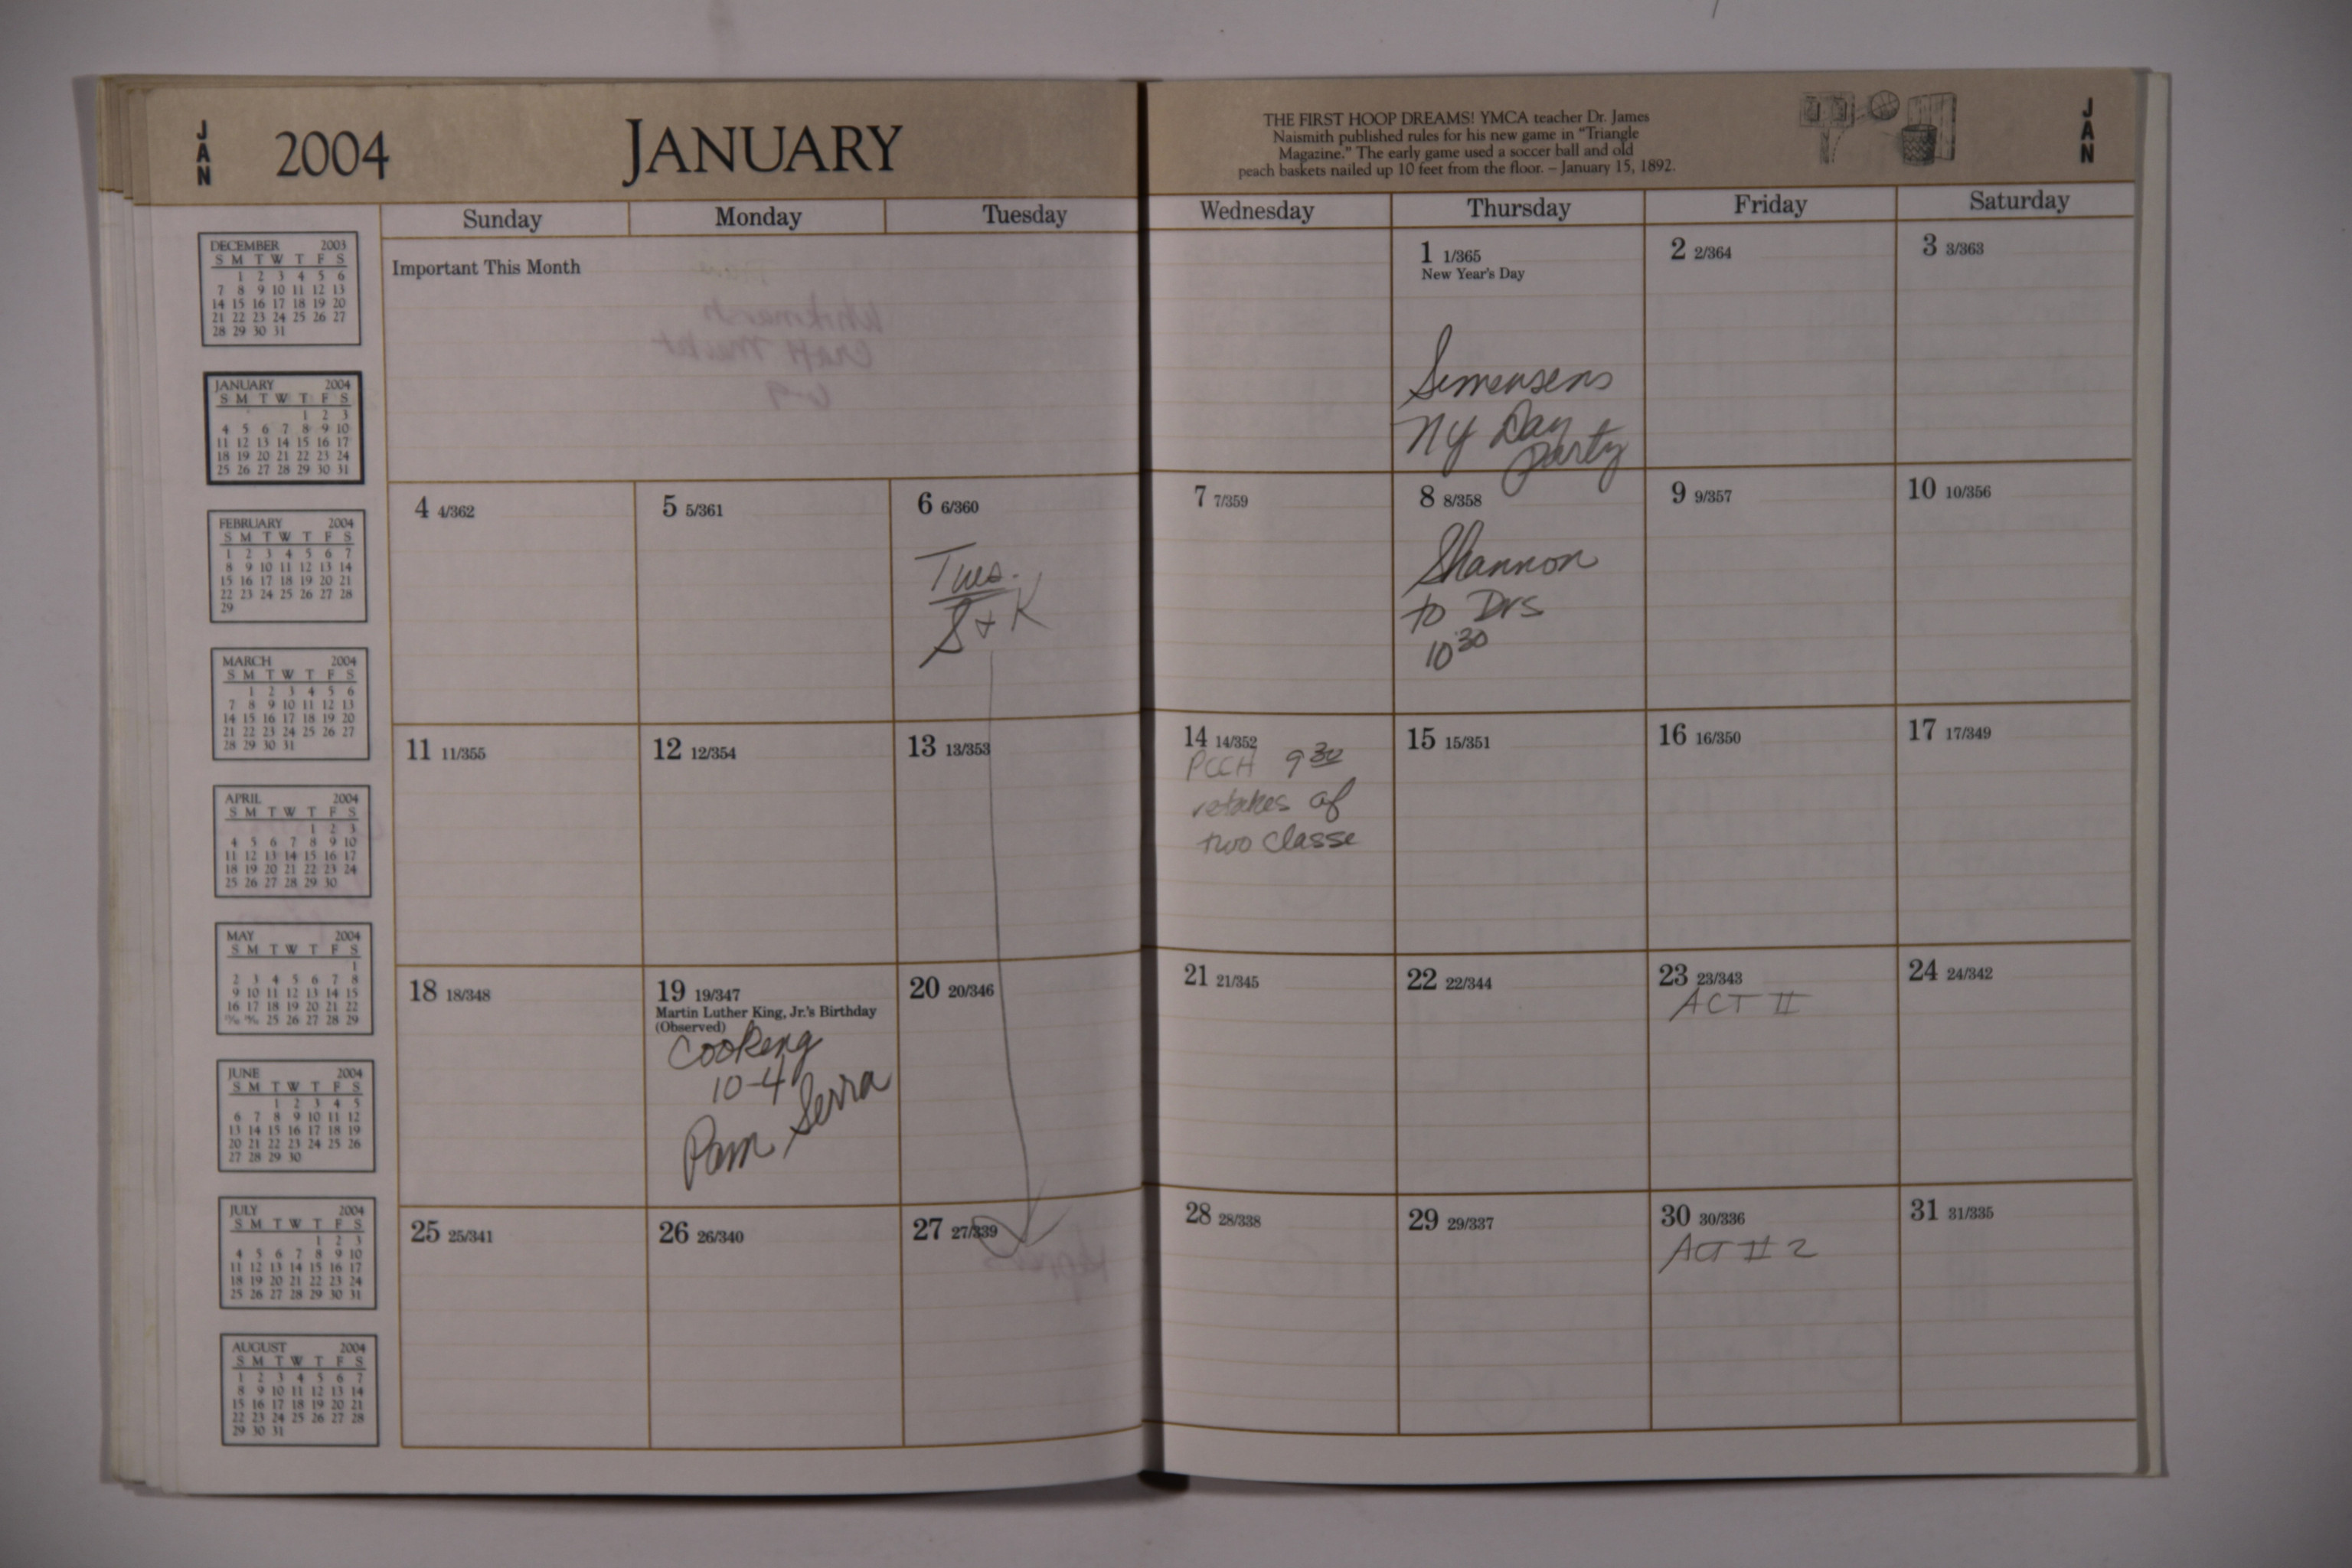 JAN
2004
JANUARY
THE FIRST HOOP DREAMS! YMCA teacher Dr. James
Naismith published rules for his new game in "Triangle
Magazine." The early game used a soccer ball and old
peach baskets nailed up 10 feet from the floor. – January 15, 1892.
JAN
Sunday Monday Tuesday Wednesday Thursday Friday Saturday
DECEMBER 2003
S M T W T F S
1 2 3 4 5 6
7 8 9 10 11 12 13
14 15 16 17 18 19 20
21 22 23 24 25 26 27
28 29 30 31
JANUARY 2004
S M T W T F S
1 2 3
4 5 6 7 8 9 10
11 12 13 14 15 16 17
18 19 20 21 22 23 24
25 26 27 28 29 30 31
FEBRUARY 2004
S M T W T F S
1 2 3 4 5 6 7
8 9 10 11 12 13 14
15 16 17 18 19 20 21
22 23 24 25 26 27 28
29
MARCH 2004
S M T W T F S
1 2 3 4 5 6
7 8 9 10 11 12 13
14 15 16 17 18 19 20
21 22 23 24 25 26 27
28 29 30 31
APRIL 2004
S M T W T F S
1 2 3
4 5 6 7 8 9 10
11 12 13 14 15 16 17
18 19 20 21 22 23 24
25 26 27 28 29 30
MAY 2004
S M T W T F S
1
2 3 4 5 6 7 8
9 10 11 12 13 14 15
16 17 18 19 20 21 22
25 26 27 28 29
JUNE 2004
S M T W T F S
1 2 3 4 5
6 7 8 9 10 11 12
13 14 15 16 17 18 19
20 21 22 23 24 25 26
27 28 29 30
JULY 2004
S M T W T F S
1 2 3
4 5 6 7 8 9 10
11 12 13 14 15 16 17
18 19 20 21 22 23 24
25 26 27 28 29 30 31
AUGUST 2004
S M T W T F S
1 2 3 4 5 6 7
8 9 10 11 12 13 14
15 16 17 18 19 20 21
22 23 24 25 26 27 28
29 30 31
Important This Month
1 1/365
New Year's Day
Simensens
NY Day
Party
2 2/364
3 3/363
4 4/362
5 5/361
6 6/360
Tues.
S + K
7 7/359
8 8/358
Shannon
to Drs
10 30
9 9/357
10 10/356
11 11/355
12 12/354
13 13/353
14 14/352
PCCH 9 30
retakes of
two classe
15 15/351
16 16/350
17 17/349
18 18/348
19 19/347
Martin Luther King, Jr.'s Birthday
(Observed)
Cooking
10-4
Pam Serra
20 20/346
21 21/345
22 22/344
23 23/343
ACT II
24 24/342
25 25/341
26 26/340
27 27/339
28 28/338
29 29/337
30 30/336
ACT II 2
31 31/335